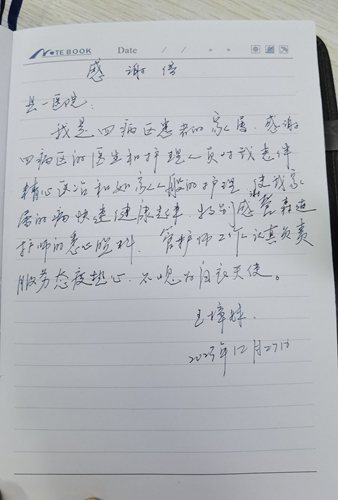 NOTEBOOK Date / /
感谢信
县一医院:
我是四病区患者的家属.感谢
四病区的医生和护理人员对我患体
精心医治和如家人般的护理使我家
属的病快速健康起来.特别感 管
护师的悉心照料. 管护师工作认真负责
服务态度热心.不愧为白衣天使。
王 妹.
2023年12月27日